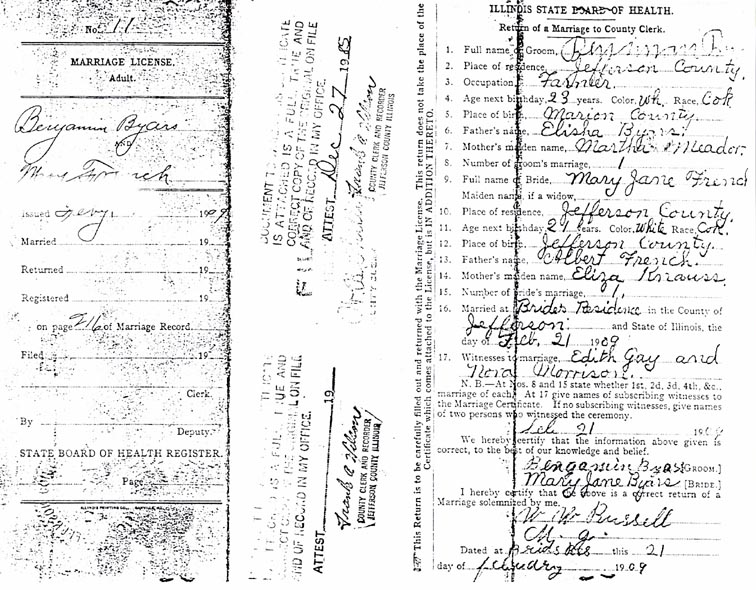 No. 11
MARRIAGE LICENSE.
Adult.
Benjamin Byars
AND
Mary French
Issued 190
Married 19
Returned 19
Registered 19
on page 216 of Marriage Record
Filed 19
Clerk.
By
Deputy.
STATE BOARD OF HEALTH REGISTER.
Page
DOCUMENT T
IS ATTACHED IS A FULL, TRUE AND
CORRECT COPY OF THE ORIGINAL ON FILE
AND OF RECORD IN MY OFFICE.
ATTEST Dec 27 1985
COUNTY CLERK AND RECORDER
JEFFERSON COUNTY ILLINOIS
ND OF RECORD IN MY OFFICE.
ATTEST 19
COUNTY CLERK AND RECORDER
JEFFERSON COUNTY ILLINOIS
This Return is to be carefully filled out and returned with the Marriage License. This return does not take the place of the
Certificate which comes attached to the License, but is IN ADDITION THERETO.
ILLINOIS STATE BOARD OF HEALTH.
Return of a Marriage to County Clerk.
1. Full name of Groom,
2. Place of residence, Jefferson County.
3. Occupation, Farmer
4. Age next birthday, 23 years. Color, Wh. Race, Cok
5. Place of birth, Marion County
6. Father's name, Elisha Byars
7. Mother's maiden name, Martha Meador.
8. Number of groom's marriage, 1
9. Full name of Bride, Mary Jane French
Maiden name, if a widow,
10. Place of residence, Jefferson County.
11. Age next birthday, years. Color, White Race, Cok.
12. Place of birth, Jefferson County.
13. Father's name, Albert French.
14. Mother's maiden name, Eliza Knauss.
15. Number of bride's marriage, 1
16. Married at Brides Residence in the County of
Jefferson. and State of Illinois, the
day of Feb. 21 1909
17. Witnesses to marriage, Edith Gay and
Nora Morrison.
N. B.—At Nos. 8 and 15 state whether 1st, 2d, 3d, 4th, &c.,
marriage of each. At 17 give names of subscribing witnesses to
the Marriage Certificate. If no subscribing witnesses, give names
of two persons who witnessed the ceremony.
Feb 21 190
We hereby certify that the information above given is
correct, to the best of our knowledge and belief.
Bengamin Byars [GROOM.]
Mary Jane Byars [BRIDE.]
I hereby certify that the above is a correct return of a
Marriage solemnized by me.
W W Russell
Dated at this 21
day of 1909